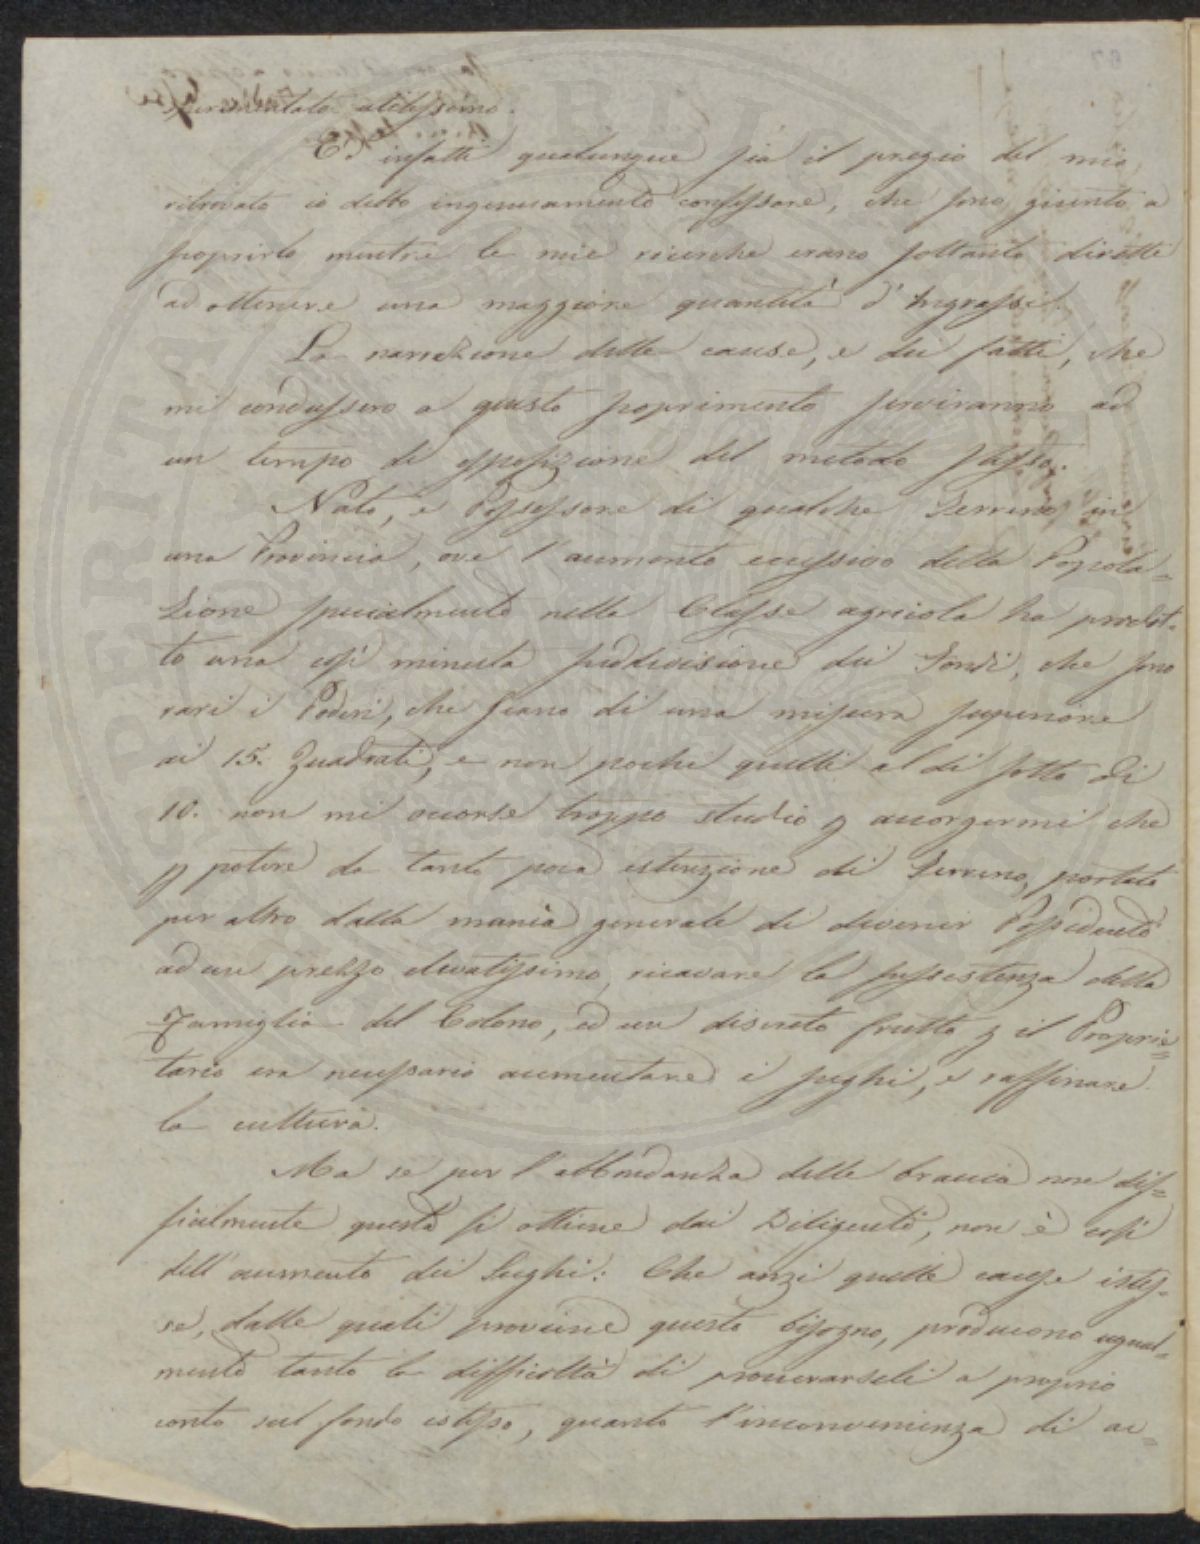 perimentato utilissimo.
Ed infatti qualunque sia il pregio del mio
ritrovato io debbo ingenuamente confessare, che sono giunto a
scoprirlo mentre le mie ricerche erano soltanto dirette
ad ottenere una maggiore quantità d'Ingrassi.
La narrazione delle cause, e dei fatti, che
mi condussero a questo scoprimento serviranno ad
un tempo di esposizione del metodo stesso.
Nato, e Possessore di qualche Terreno in
una Provincia, ove l'aumento eccessivo della Popola=
zione specialmente nella Classe agricola ha prodot=
to una così minuta suddivisione dei Fondi, che sono
rari i Poderi, che siano di una misura superiore
ai 15. Quadrati, e non pochi quelli al di sotto di
10. non mi occorse troppo studio p accorgermi che
p potere da tanto poca estenzione di Terreno, portato
per altro dalla mania generale di divenir Possidente
ad un prezzo elevatissimo, ricavare la sussistenza della
Famiglia del Colono, ed un discreto frutto p il Proprie=
tario era necessario aumentare i sughi, e raffinare
la cultura.
Ma se per l'abbondanza delle braccia non dif=
ficilmente questo si ottiene dai Diligenti, non è così
dell'aumento dei Sughi: Che anzi quelle cause istes=
se, dalle quali proviene questo bisogno, producono ugual=
mente tanto la difficoltà di procurarseli a proprio
conto sul fondo istesso, quanto l'inconvenienza di ac=